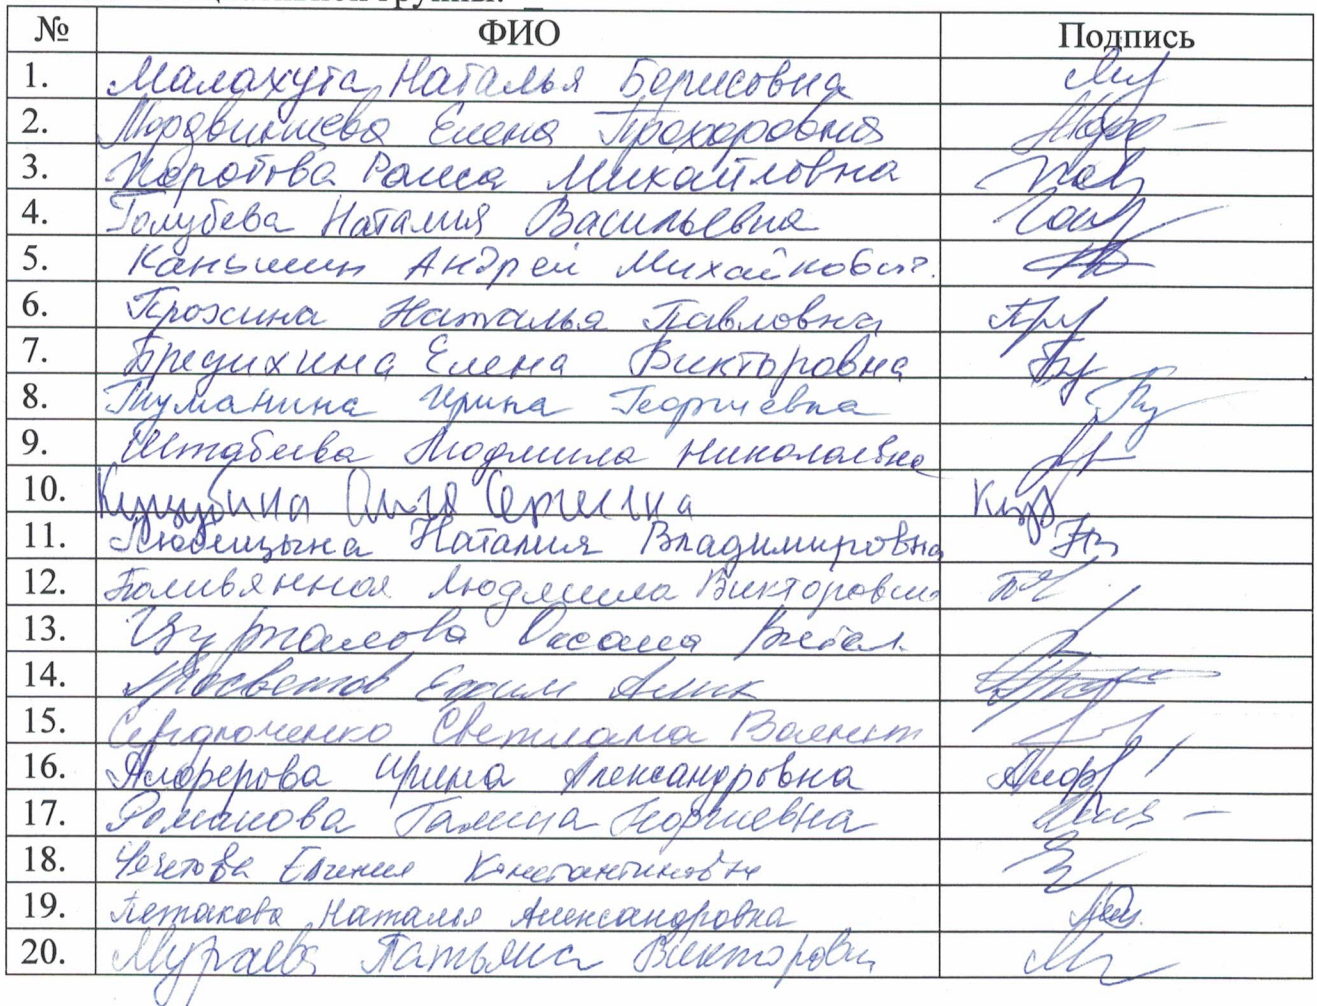 № ФИО Подпись
1. Малахута Наталья Борисовна
2. Мордвинцева Елена Прохоровна
3. Коротова Раиса Михайловна
4. Голубева Наталия Васильевна
5. Каньшин Андрей Михайлович.
6. Прохина Наталья Павловна
7. Бредихина Елена Викторовна
8. Туманина Ирина Георгиевна
9. Штабева Людмила Николаевна
10. Сергеевна
11. Любицына Наталия Владимировна
12. Людмила Викторовна
13. Оксана Витал.
14. Просветов Ефим
15. Светлана Валент
16. Алферова Ирина Александровна
17. Романова Галина Георгиевна
18. Чечетова Евгения Константиновна
19. Петакова Наталья Александровна
20. Мураева Татьяна Викторовн